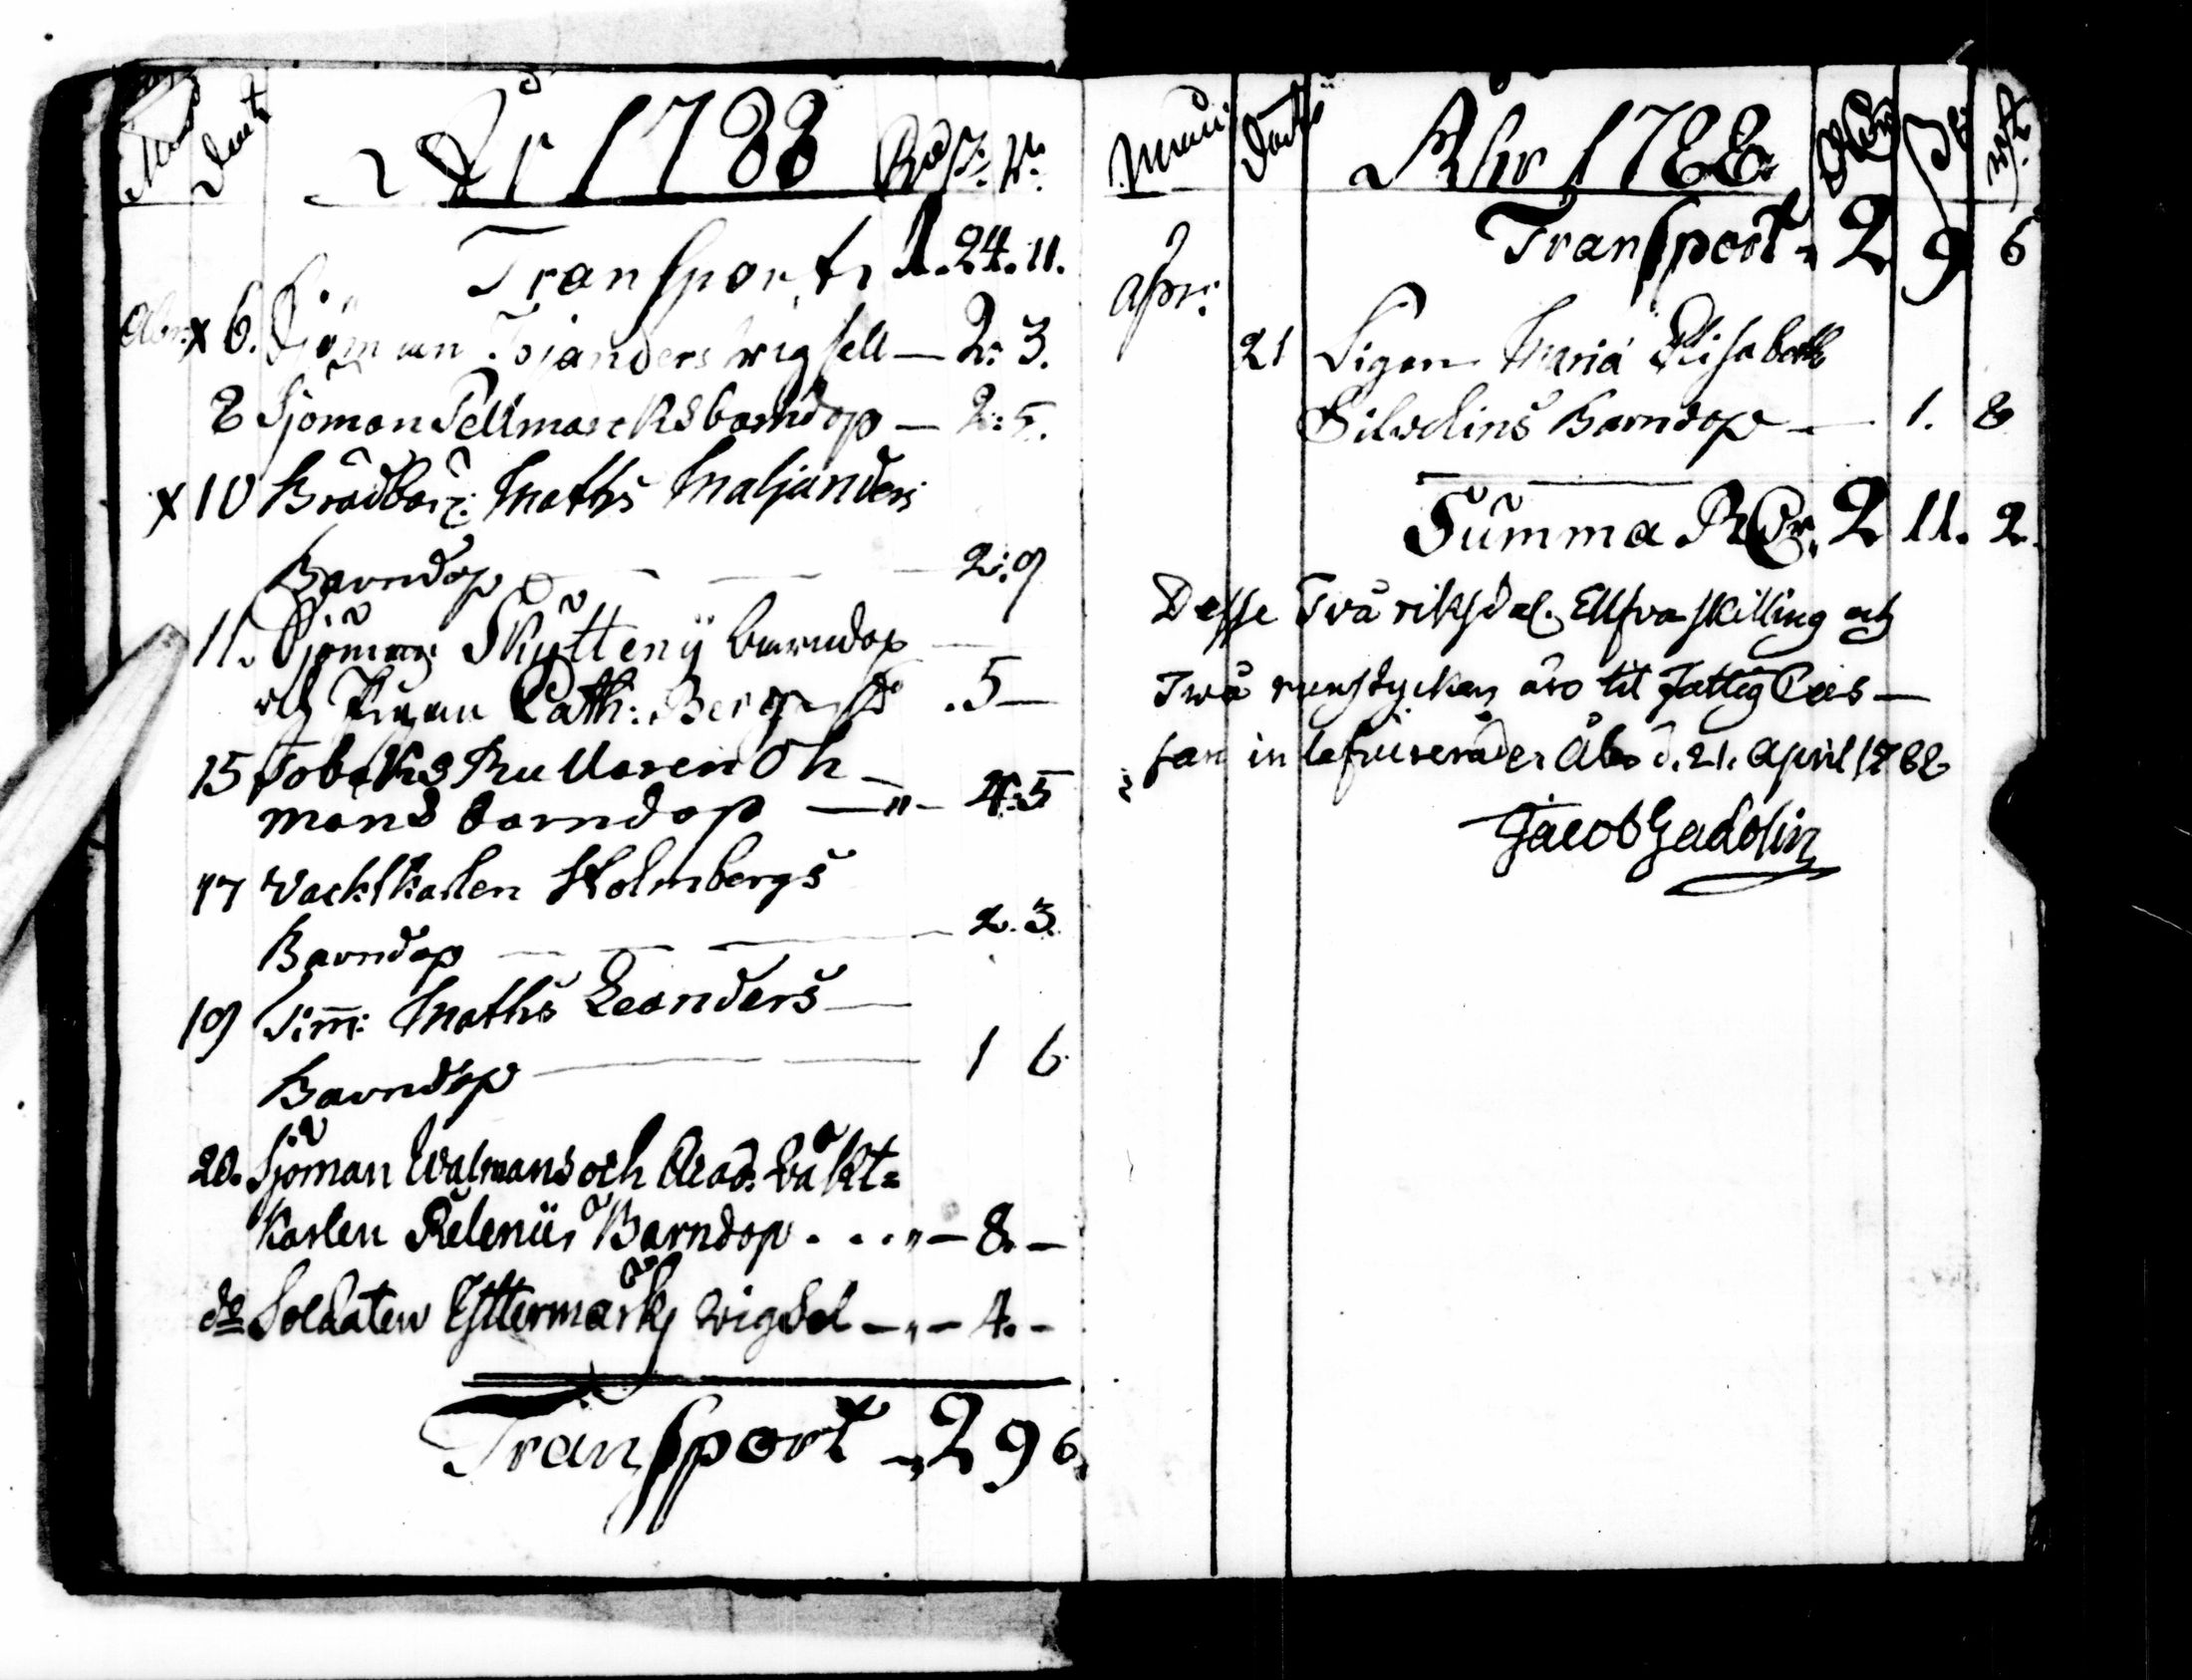 Dat
År 1788 Rd ß: r:
Transport, 1. 24. 11.
x 6. Sjöman Tojanders wigsell — 2: 3.
8 Sjöman Tellmarcks barndop — 2: 5.
x 10 Maths Maljanders
Barndop — — — 2: 9
11. Sjöman: Skytteny barndop —
och Cath: Berg .5 —
15 Tobaks Rullaren Öh-
mans barndop — " — 4: 5
17 Vacktkarlen Holmbergs
Barndop — — 2. 3.
19 Tim: Maths Leanders —
Barndop — — 1 6
20. Sjöman Walmans och Acad. Wäkt=
Karlen Relenii Barndop . . . " — 8. —
do Soldaten Estermarks wigsel — " — 4. —
Transport — 2 9 6
Åhr 1788
Transport = 2 9 6
Apr:
21 Pigan Maria Elisabeth
Silvelins Barndop — 1. 8
Summa RDr. 2 11. 2.
Desse Två riksdal. Ellfva skilling och
Twå runstycken äro til Fattig Cas—
san inlefvererade. Åbo d. 21. April 1788
Jacob Gadolin